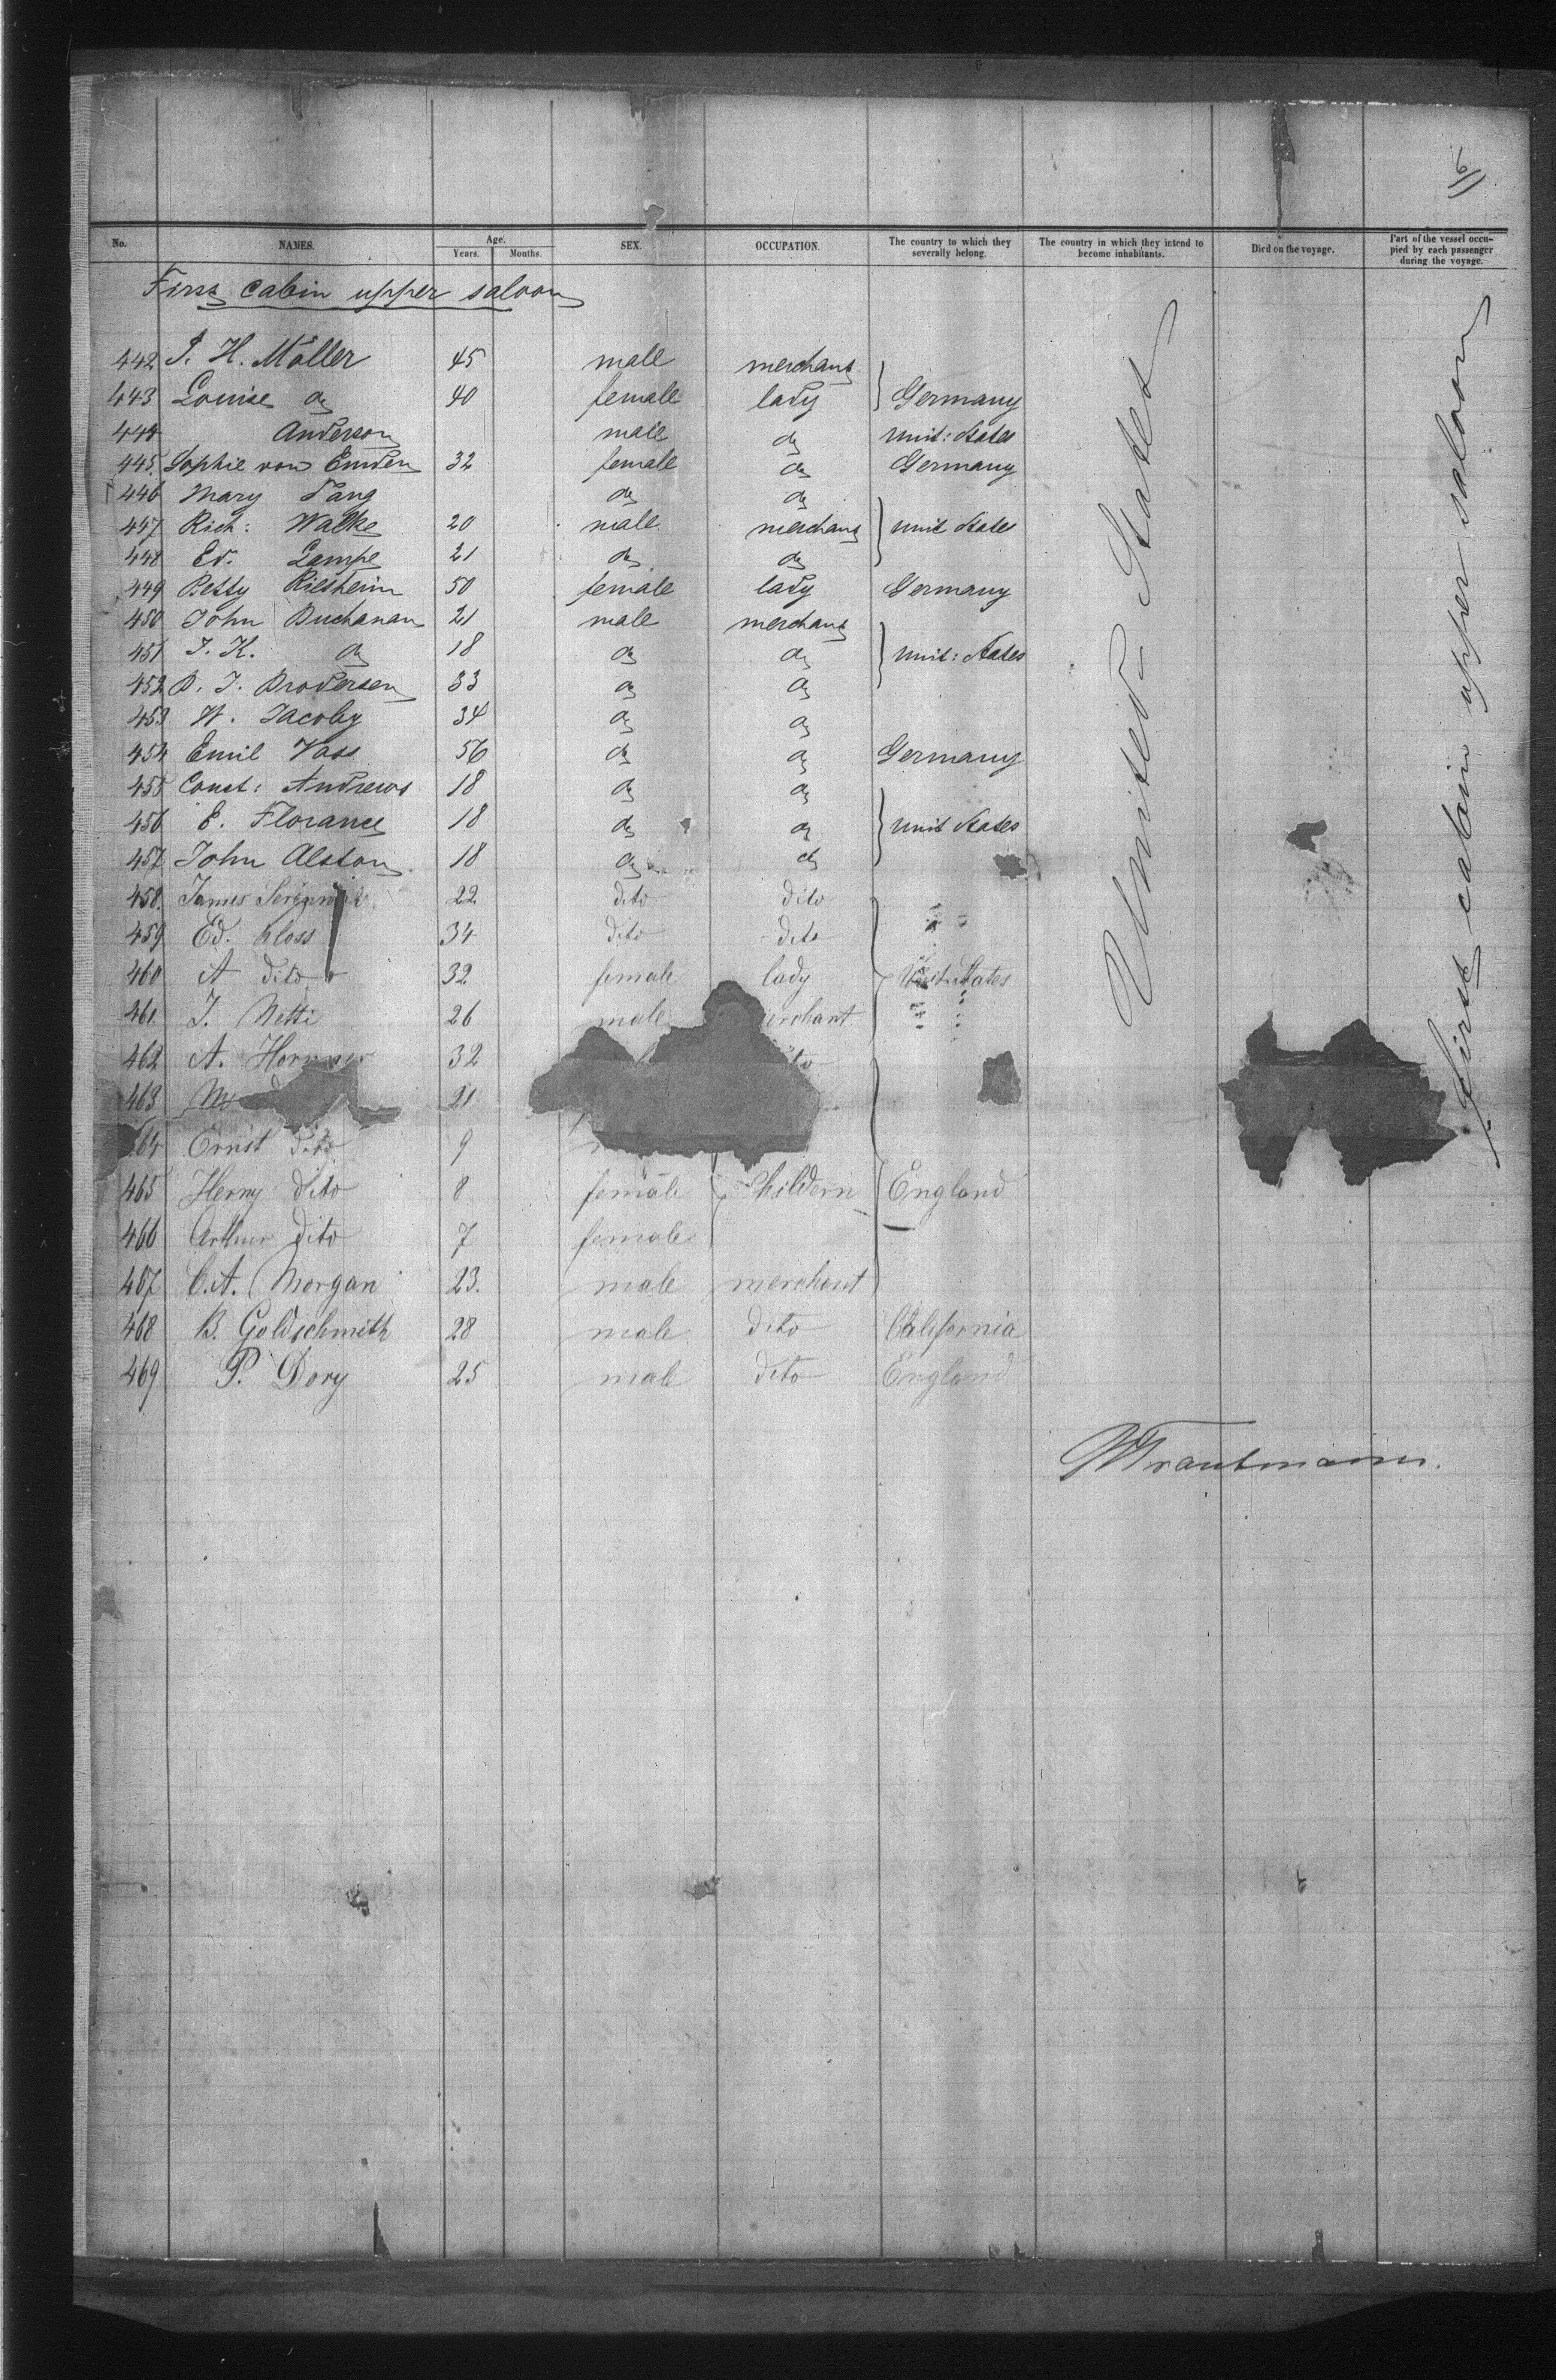 6)
No. NAMES. Age. Years. Months. SEX. OCCUPATION. The country to which they severally belong. The country in which they intend to become inhabitants. Died on the voyage. Part of the vessel occupied by each passenger during the voyage.
First cabin upper saloon
442 J. H. Möller 45 male merchant
443 Louise do 40 female lady Germany
444 Anderson male do Unit: States
445. Sophie von Emden 32 female do Germany
446 Mary Lang do do
447 Rich: Walke 20 male merchant Unit States
448 Ed. Lampe 21 do do
449 Betty Rielsheim 50 female lady Germany
450 John Buchanan 21 male merchant
451 J. K. do 18 do do Unit: States
452 B. J. Brodersen 33 do do
453 W. Jacoby 34 do do
454 Emil Vass 56 do do Germany
455 Const: Andrews 18 do do
456 E. Florance 18 do do Unit States
457 John Alston 18 do do
458. James 22 dito dito
459 Ed. Kloss 34 dito dito
460 A dito 32 female lady Unit. States
461. J. Netti 26 male merchant
462 A. 32
463 21
464 Ernst dito 9
465 Herny dito 8 female Childern England
466 Arthur dito 7 female
467 C.A. Morgan 23. male merchant
468 B. Goldschmith 28 male dito California
469 P. Dory 25 male dito England
United States
First cabin upper saloon
WTrautmann.